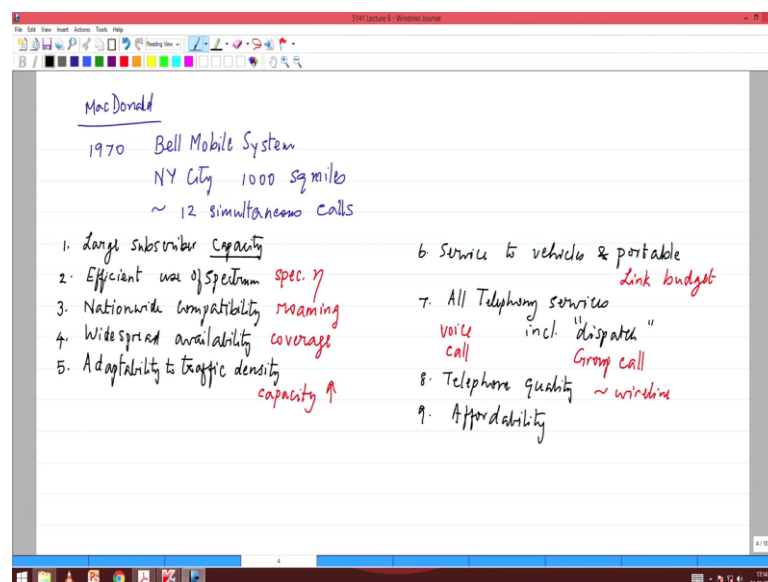 5141 Lecture 8 - Windows Journal
File Edit View Insert Actions Tools Help
Reading View
B I
MacDonald
1970 Bell Mobile System
NY City 1000 sq miles
~ 12 simultaneous calls
1. Large subscriber capacity
2. Efficient use of spectrum spec. η
3. Nationwide compatibility roaming
4. Widespread availability coverage
5. Adaptability to traffic density
capacity ↑
6. Service to vehicles & portable
Link budget
7. All Telephony services
incl. "dispatch"
voice call
Group call
8. Telephone quality ~ wireline
9. Affordability
4